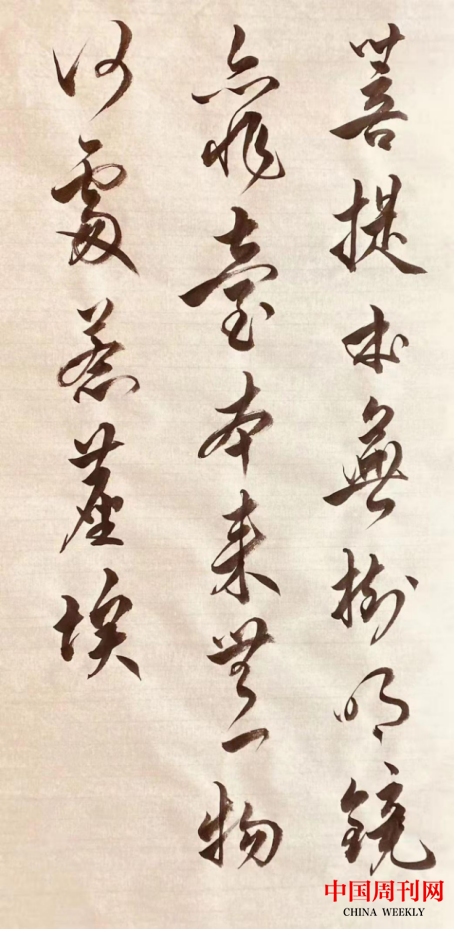 菩提本無樹明鏡
亦非臺本来無一物
何處惹塵埃
中国周刊网
CHINA WEEKLY